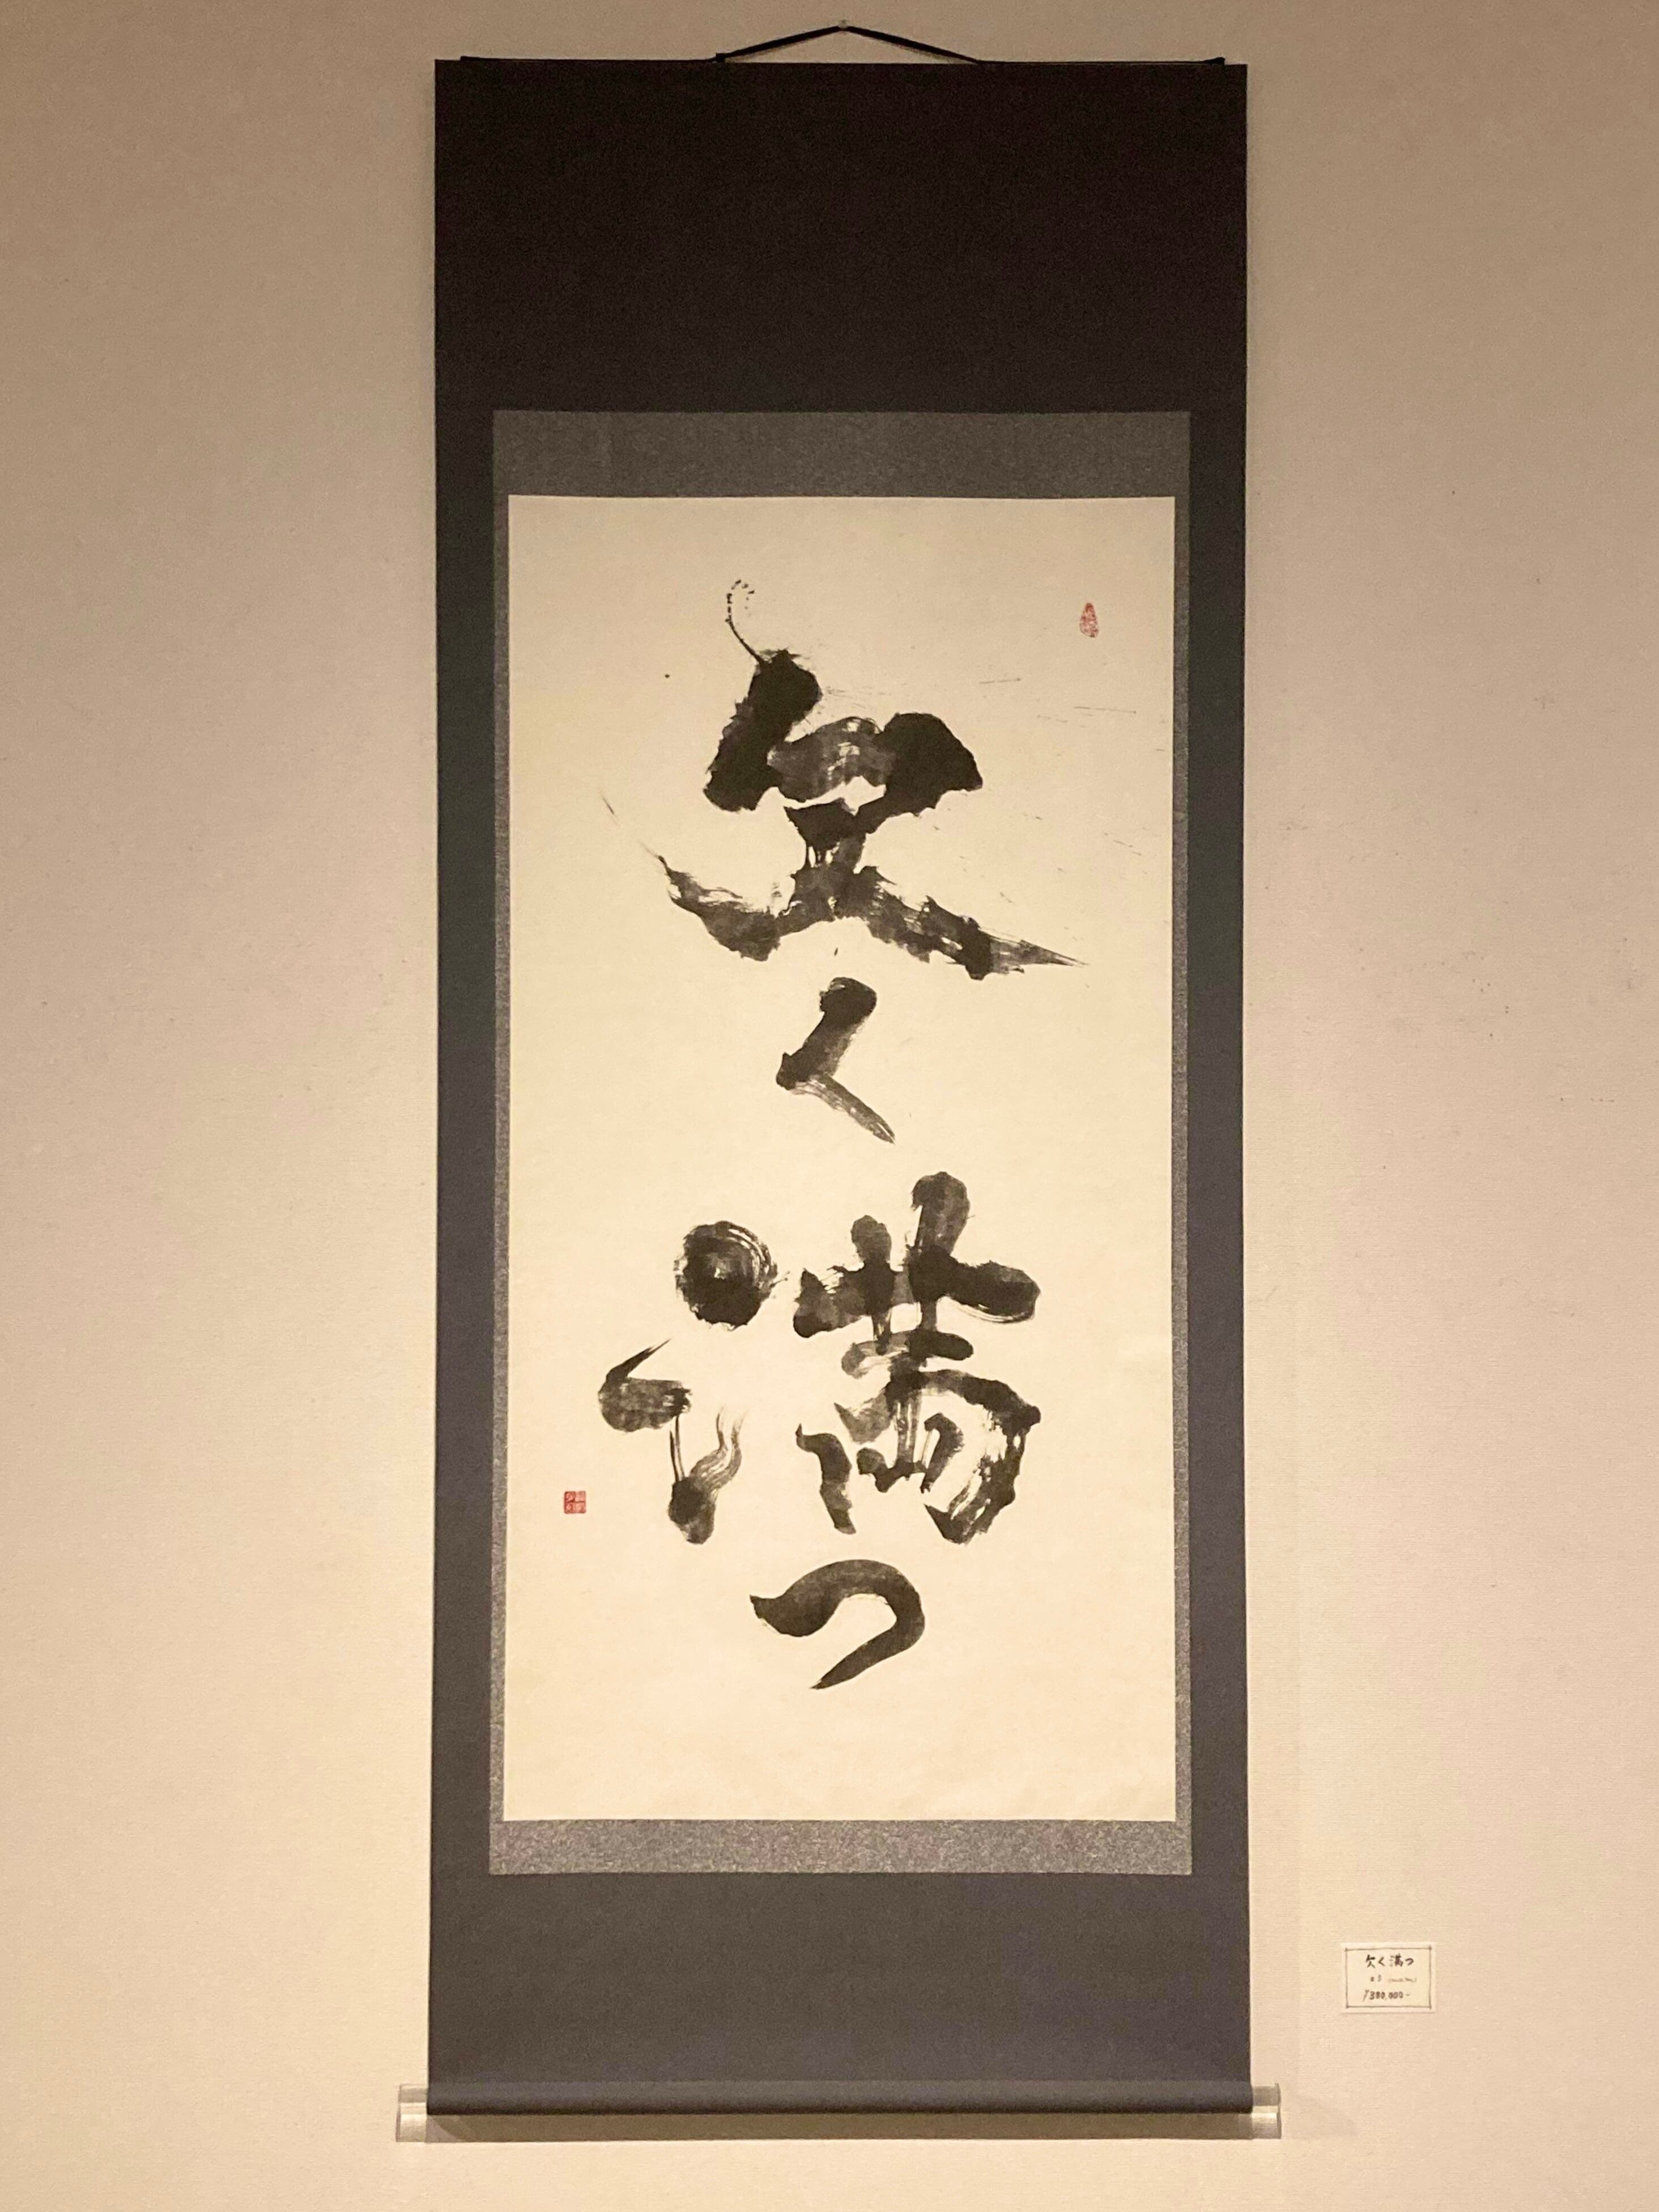 欠く満つ
欠く満つ
¥380,000-